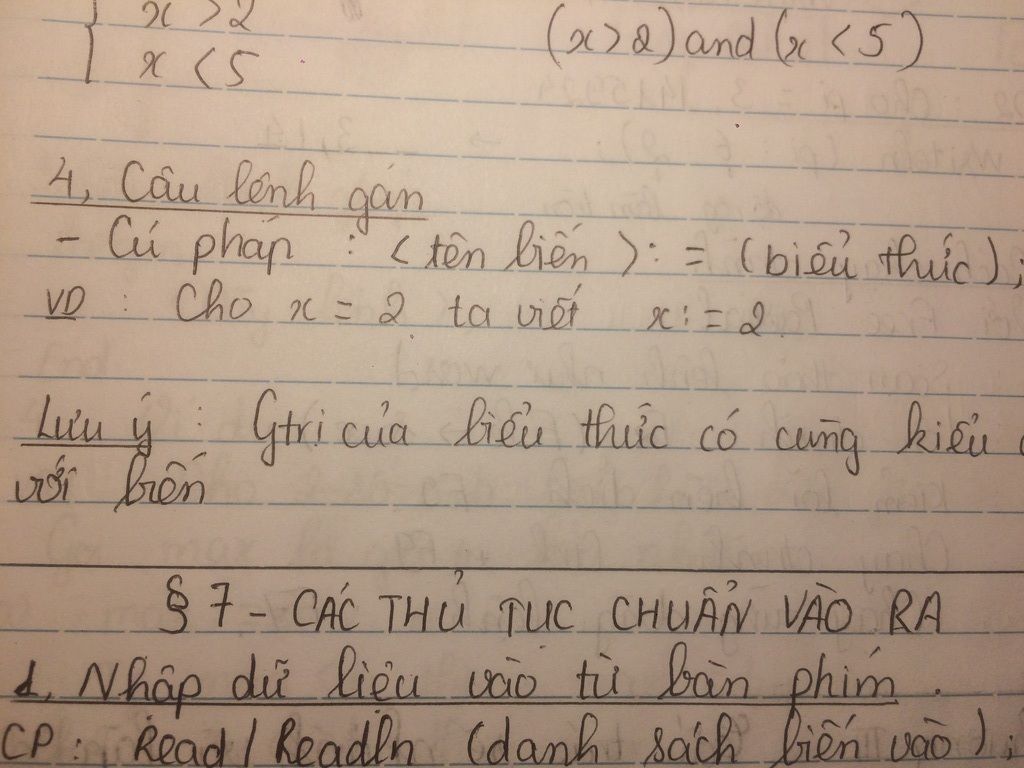 x > 2 (x>2) and (x < 5)
x < 5
4, Câu lệnh gán
- Cú pháp : <tên biến> : = (biểu thức);
VD : Cho x = 2 ta viết x : = 2
Lưu ý : Gtrị của biểu thức có cùng kiểu
với biến
§ 7 - CÁC THỦ TỤC CHUẨN VÀO RA
1, Nhập dữ liệu vào từ bàn phím.
CP : Read / Readln (danh sách biến vào);